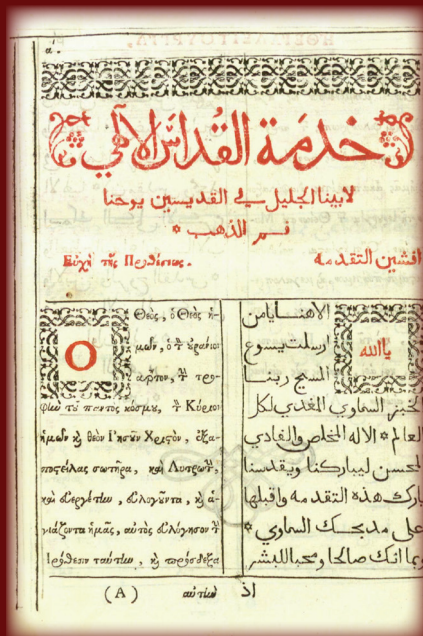 α.
خدمة القداس الالاهي
لابينا الجليل في القديسين يوحنا
فم الذهب *
Εὐχὴ τῆς Προθέσεως. افشين التقدمه
Ὁ Θεὸς, ὁ Θεὸς ἡ-
μῶν, ὁ τ̀ οὐράνιον
ἄρτον, τ̀ τρο-
φὴν τοῦ παντὸς κόσμου, τ̀ Κύριον
ἡμῶν κ̀ θεὸν Ἰησοῦν Χριστὸν, ἐξα-
ποςείλας σωτῆρα, καὶ Λυτρωτ̀,
καὶ εὐεργέτην, εὐλογοῦντα, κ̀ ἁ-
γιάζοντα ἡμᾶς, αὐτὸς εὐλόγησον τ̀
πρόθεσιν ταύτην, κ̀ πρόσδεξαι
(A) αὐτὴν
ياالله
الاهنا يامن
ارسلت يسوع
المسيح ربنا
الخبز السماوي المغدي لكل
العالم * الاله المخلص والفادي
المحسن ليباركنا ويقدسنا
بارك هذه التقدمه واقبلها
على مذبحك السماوي *
وبما انك صالحا ومحبا للبشر
اذ